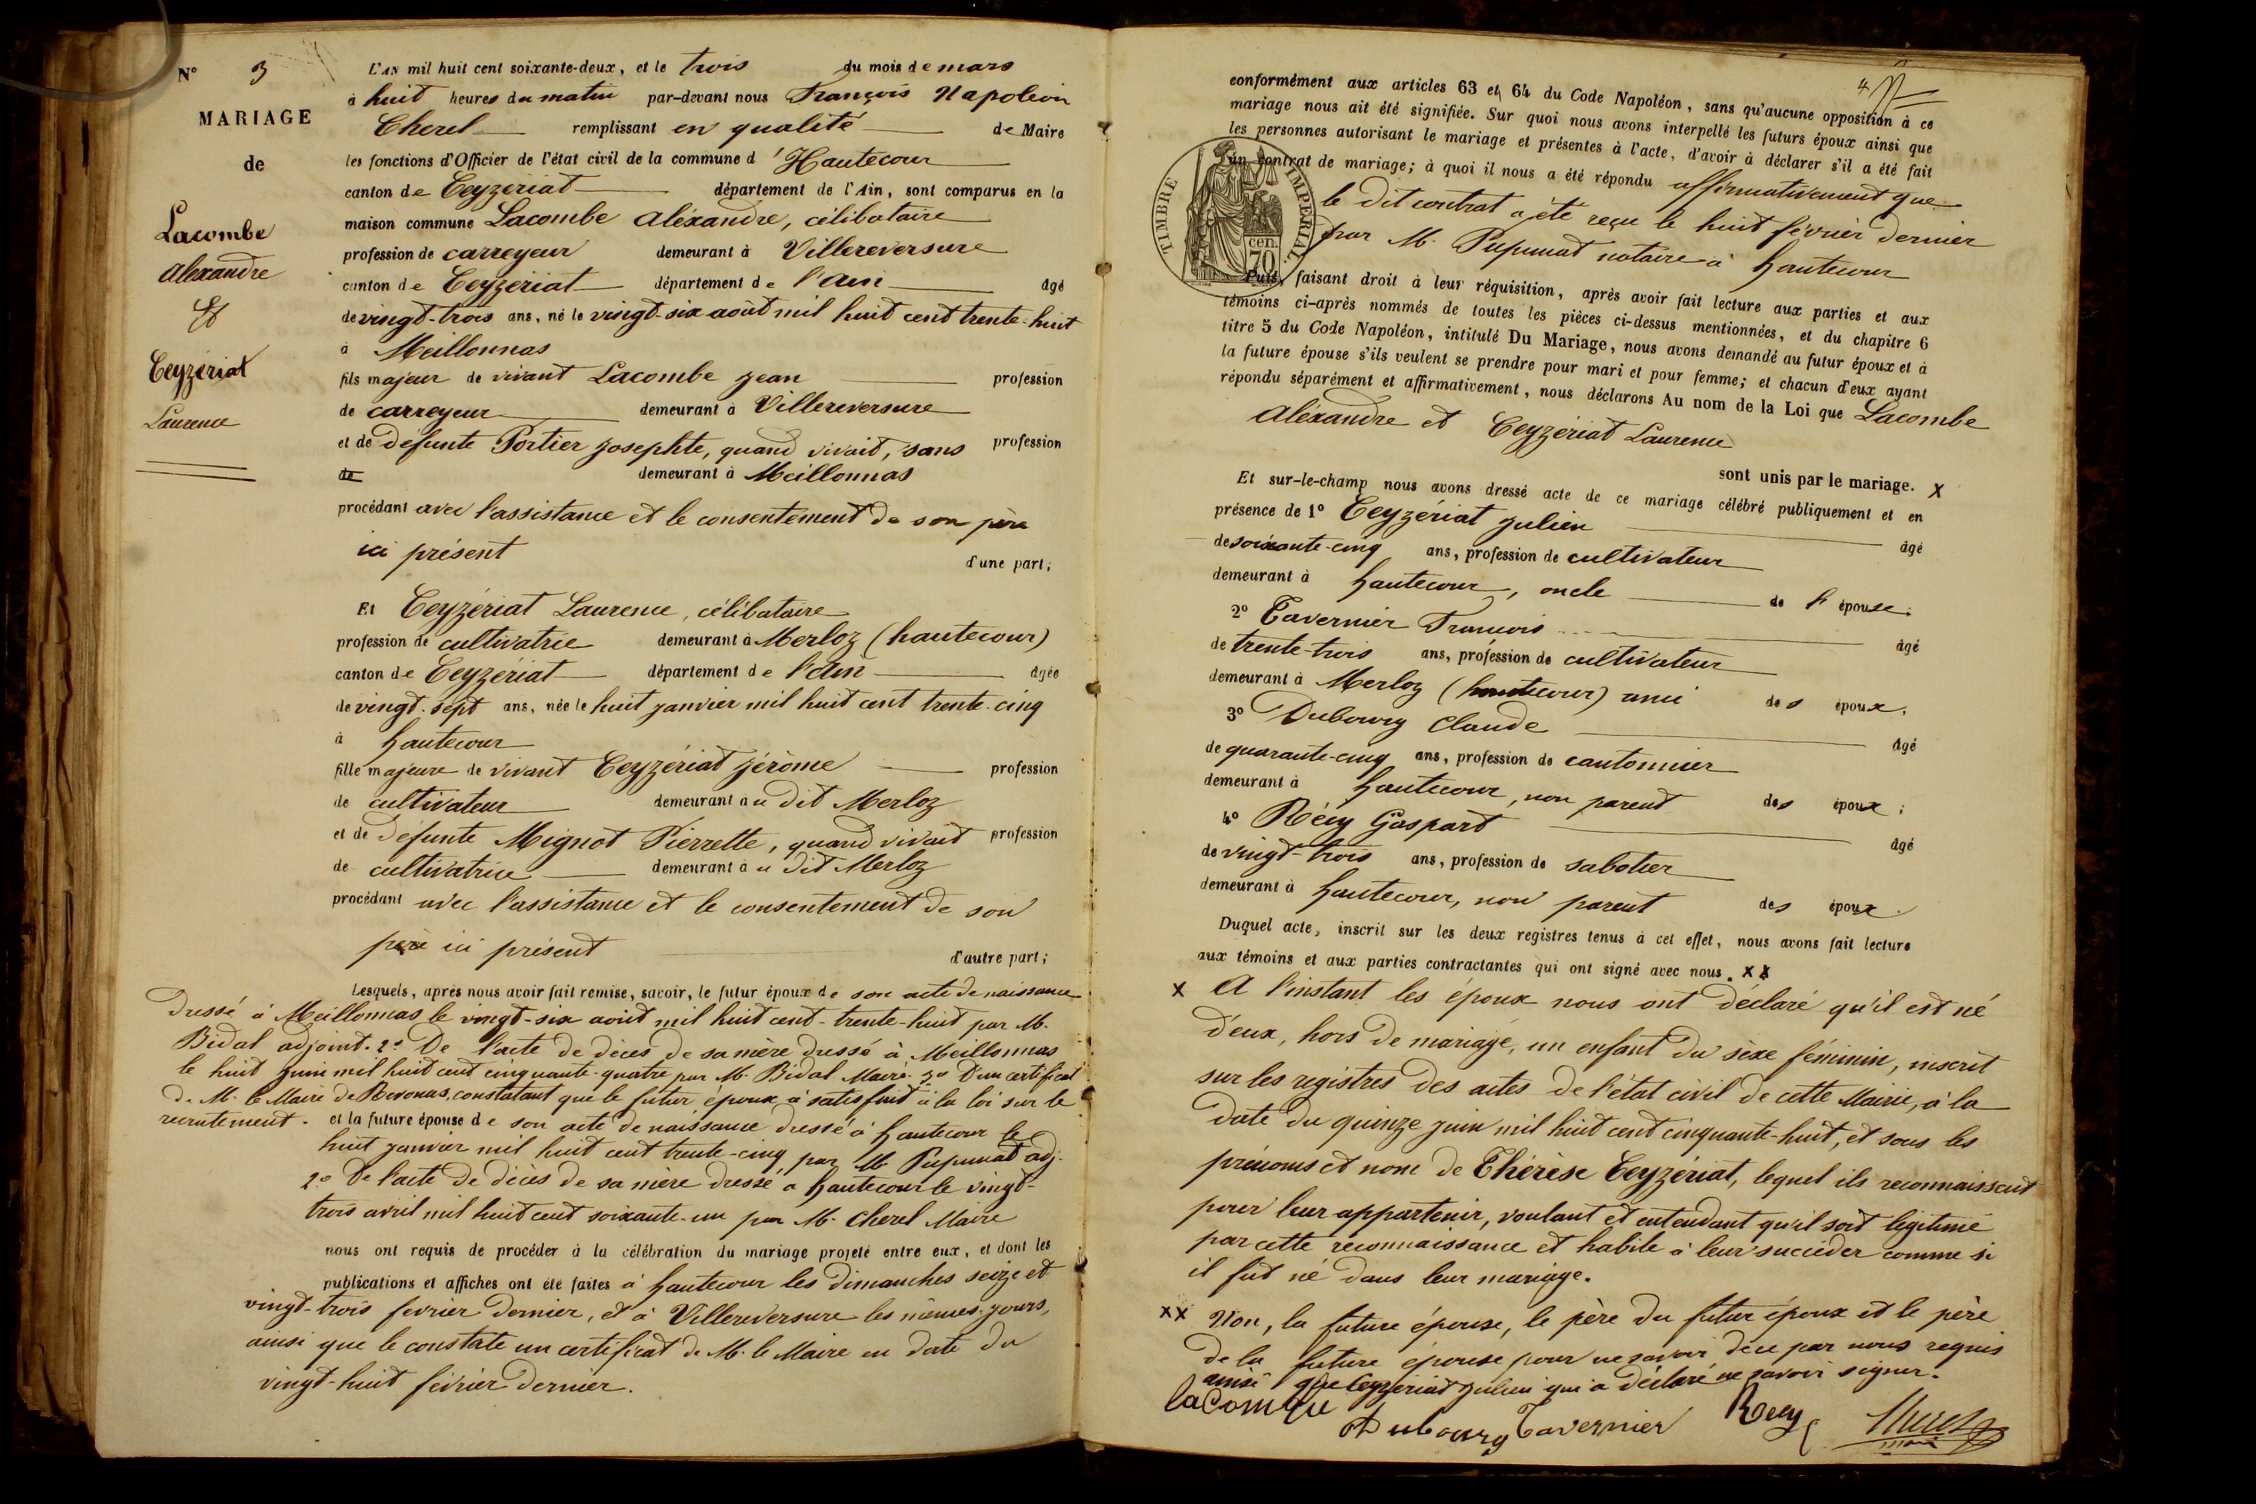 N° 3
MARIAGE
de
Lacombe
Alexandre
Et
Ceyzériat
Laurence
L'AN mil huit cent soixante-deux, et le trois du mois de mars
à huit heures du matin par-devant nous François Napoléon
Cherel remplissant en qualité de Maire
les fonctions d'Officier de l'état civil de la commune d'Hautecour
canton de Ceyzériat département de l'Ain, sont comparus en la
maison commune Lacombe Aléxandre, célibataire
profession de carreyeur demeurant à Villereversure
canton de Ceyzériat département de l'Ain âgé
de vingt-trois ans, né le vingt-six août mil huit cent trente-huit
à Meillonnas
fils majeur de vivant Lacombe Jean profession
de carreyeur demeurant à Villereversure
et de défunte Portier Josephte, quand vivait, sans profession
de demeurant à Meillonnas
procédant avec l'assistance et le consentement de son père
ici présent d'une part;
Et Ceyzériat Laurence, célibataire
profession de cultivatrice demeurant à Merloz (hautecour)
canton de Ceyzériat département de l'Ain âgée
de vingt-sept ans, née le huit janvier mil huit cent trente-cinq
à hautecour
fille majeure de vivant Ceyzériat Jérôme profession
de cultivateur demeurant au dit Merloz
et de défunte Mignot Pierrette, quand vivait profession
de cultivatrice demeurant au dit Merloz
procédant avec l'assistance et le consentement de son
père ici présent d'autre part;
Lesquels, après nous avoir fait remise, savoir, le futur époux de son acte de naissance
dressé à Meillonnas le vingt-six août mil huit cent-trente-huit par M.
Bidal adjoint. 2° De l'acte de décès de sa mère dressé à Meillonnas
le huit juin mil huit cent cinquante-quatre par M. Bidal Maire. 3° D'un certificat
de M. le Maire de Revonas, constatant que le futur époux a satisfait à la loi sur le
recrutement. et la future épouse de son acte de naissance dressé à hautecour le
huit janvier mil huit cent trente-cinq par M. Pupunat adj.
2° De l'acte de décès de sa mère dressé à hautecour le vingt-
trois avril mil huit cent soixante-un par M. Cherel Maire
nous ont requis de procéder à la célébration du mariage projeté entre eux, et dont les
publications et affiches ont été faites à hautecour les dimanches seize et
vingt-trois février dernier, et à Villereversure les mêmes jours,
ainsi que le constate un certificat de M. le Maire en date du
vingt-huit février dernier.
4
conformément aux articles 63 et 64 du Code Napoléon, sans qu'aucune opposition à ce
mariage nous ait été signifiée. Sur quoi nous avons interpellé les futurs époux ainsi que
les personnes autorisant le mariage et présentes à l'acte, d'avoir à déclarer s'il a été fait
un contrat de mariage; à quoi il nous a été répondu affirmativement que
le dit contrat a été reçu le huit février dernier
par M. Pupunat notaire à hautecour
TIMBRE IMPÉRIAL.
70 cen.
Puis, faisant droit à leur réquisition, après avoir fait lecture aux parties et aux
témoins ci-après nommés de toutes les pièces ci-dessus mentionnées, et du chapitre 6
titre 5 du Code Napoléon, intitulé Du Mariage, nous avons demandé au futur époux et à
la future épouse s'ils veulent se prendre pour mari et pour femme; et chacun d'eux ayant
répondu séparément et affirmativement, nous déclarons Au nom de la Loi que Lacombe
Aléxandre et Ceyzériat Laurence
sont unis par le mariage. X
Et sur-le-champ nous avons dressé acte de ce mariage célébré publiquement et en
présence de 1° Ceyzériat Julien âgé
de soixante-cinq ans, profession de cultivateur
demeurant à hautecour, oncle de l'épouse;
2° Tavernier François âgé
de trente-trois ans, profession de cultivateur
demeurant à Merloz (hautecour) ami des époux;
3° Dubourg Claude âgé
de quarante-cinq ans, profession de cantonnier
demeurant à hautecour, non parent des époux;
4° Récy Gaspart âgé
de vingt-trois ans, profession de sabotier
demeurant à hautecour, non parent des époux.
Duquel acte, inscrit sur les deux registres tenus à cet effet, nous avons fait lecture
aux témoins et aux parties contractantes qui ont signé avec nous. X X
X A l'instant les époux nous ont déclaré qu'il est né
d'eux, hors de mariage, un enfant du sèxe féminin, inscrit
sur les registres des actes de l'état civil de cette Mairie, à la
date du quinze juin mil huit cent cinquante-huit, et sous les
prénoms et nom de Thérèse Ceyzériat, lequel ils reconnaissent
pour leur appartenir, voulant et entendant qu'il soit légitimé
par cette reconnaissance et habile à leur succéder comme si
il fut né dans leur mariage.
XX Non, la future épouse, le père du futur époux et le père
de la future épouse pour ne savoir de ce par nous requis
ainsi que Ceyzériat Julien qui a déclaré ne savoir signer.
laComBe
Dubourg Tavernier Recy Cherel
maire